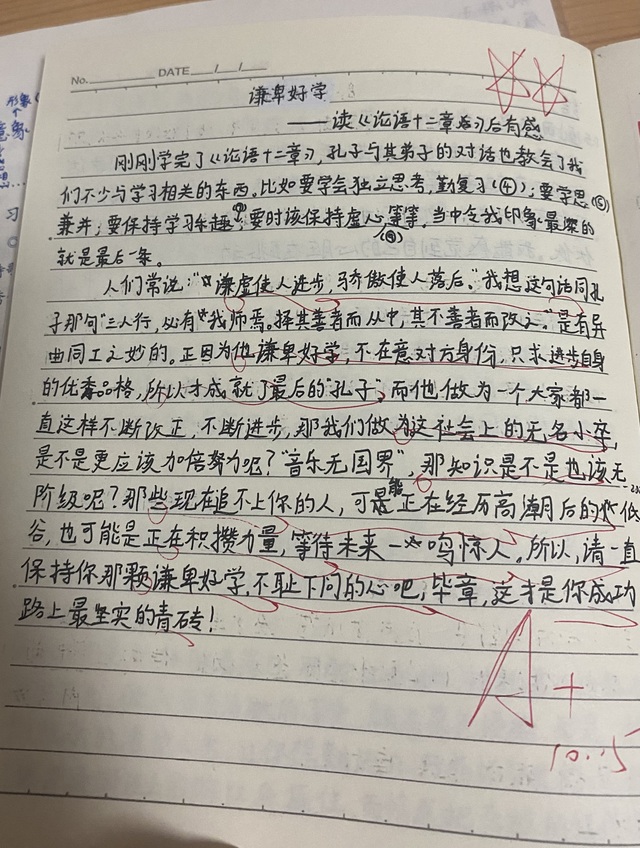 No. DATE / /
谦卑好学
——读《论语十二章》学习后有感
刚刚学完了《论语十二章》,孔子与其弟子的对话也教会了我
们不少与学习相关的东西。比如要学会独立思考,勤复习(④);要学思(⑤)
兼并;要保持学习乐趣;要时该保持虚心等等,当中令我印象最深的
就是最后一条。
人们常说:“谦虚使人进步,骄傲使人落后。”我想这句话同孔
子那句“三人行,必有我师焉。择其善者而从中,其不善者而改之。”是有异
曲同工之妙的。正因为他谦卑好学,不在意对方身份,只求进步自身
的优秀品格,所以才成就了最后的“孔子”,而他做为一个大家都一
直这样不断改正,不断进步,那我们做为这社会上的无名小卒,
是不是更应该加倍努力呢?“音乐无国界”,那知识是不是也该无
阶级呢?那些现在追不上你的人,可能是正在经历高潮后的低
谷,也可能是正在积攒力量,等待未来一鸣惊人。所以,请一直
保持你那颗谦卑好学,不耻下问的心吧,毕章,这才是你成功
路上最坚实的青砖!
A+
10.15